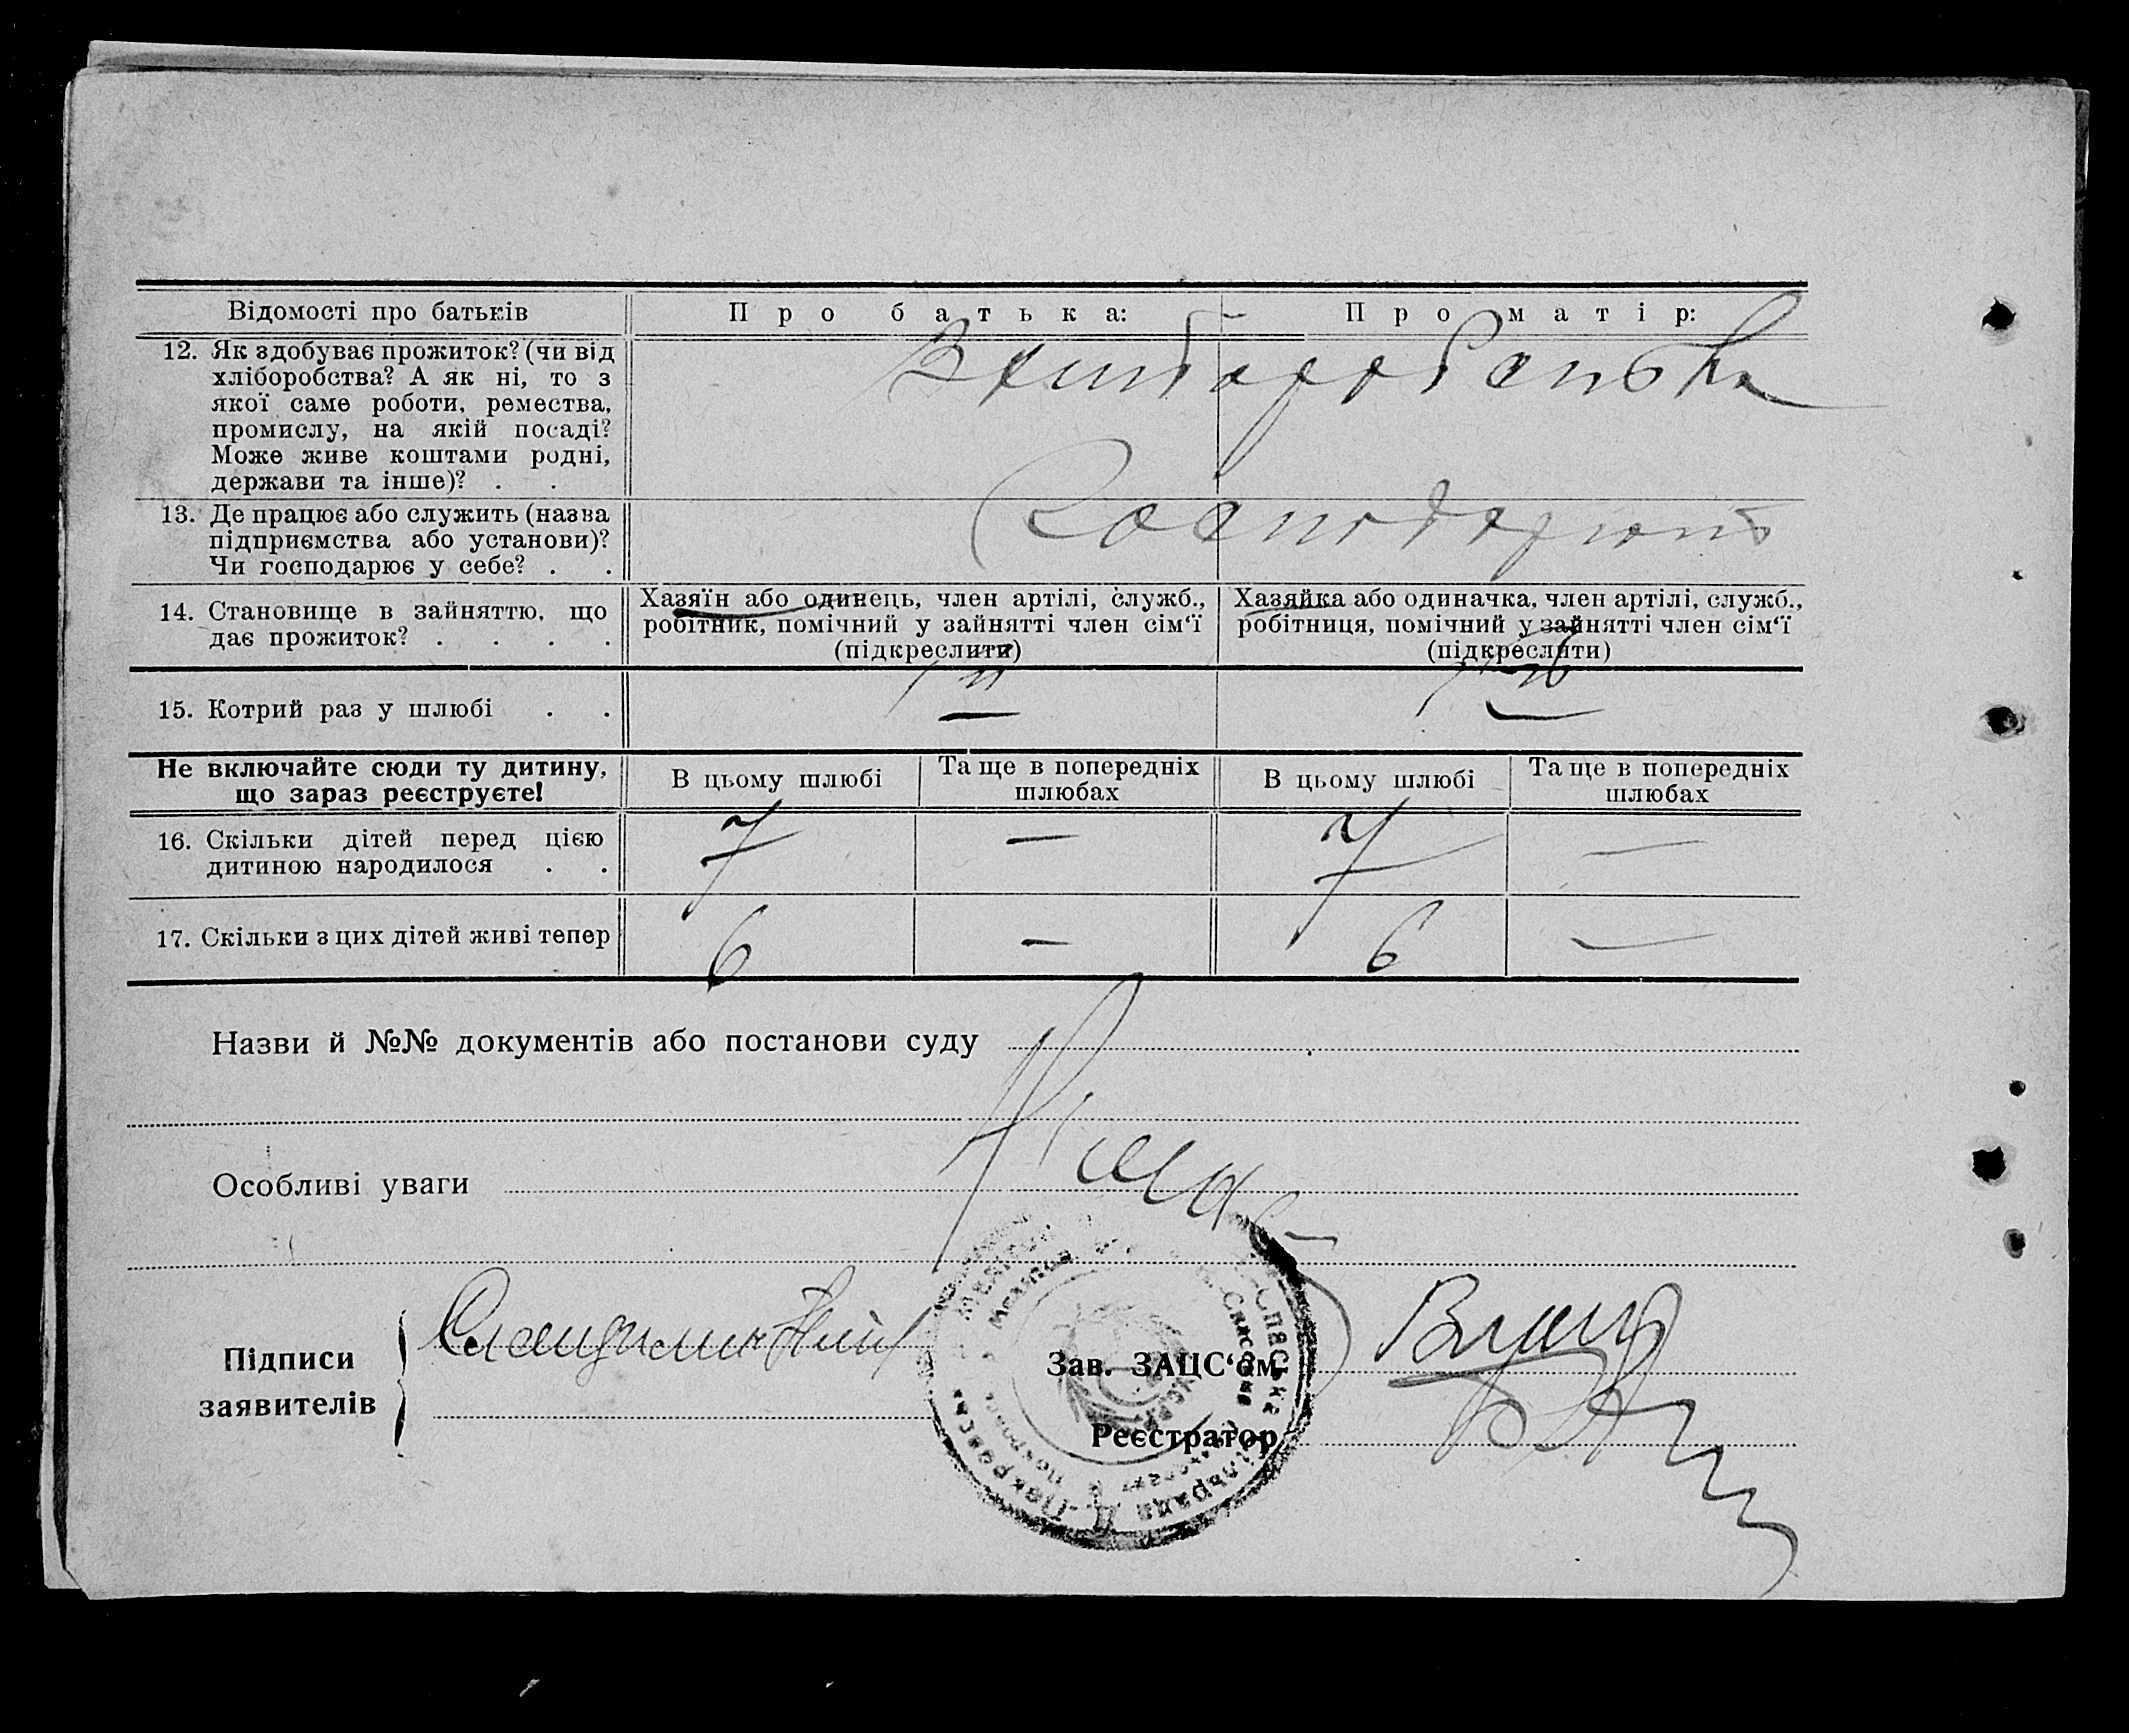 Відомості про батьків
Про батька:
Про матір:
12. Як здобуває прожиток? (чи від
хліборобства? А як ні, то з
якої саме роботи, ремества,
промислу, на якій посаді?
Може живе коштами родні,
держави та інше)? . .
13. Де працює або служить (назва
підприємства або установи)?
Чи господарює у себе? . .
14. Становище в зайняттю, що
дає прожиток? . . . .
Хазяїн або одинець, член артілі, служб.,
робітник, помічний у зайнятті член сім'ї
(підкреслити)
Хазяйка або одиначка, член артілі, служб.,
робітниця, помічний у зайнятті член сім'ї
(підкреслити)
15. Котрий раз у шлюбі . .
Не включайте сюди ту дитину,
що зараз реєструєте!
В цьому шлюбі
Та ще в попередніх
шлюбах
В цьому шлюбі
Та ще в попередніх
шлюбах
16. Скільки дітей перед цією
дитиною народилося . .
7 — 7 —
17. Скільки з цих дітей живі тепер
6 — 6 —
Назви й №№ документів або постанови суду
Немає
Особливі уваги
Підписи
заявителів
Зав. ЗАЦС'ом
Реєстратор